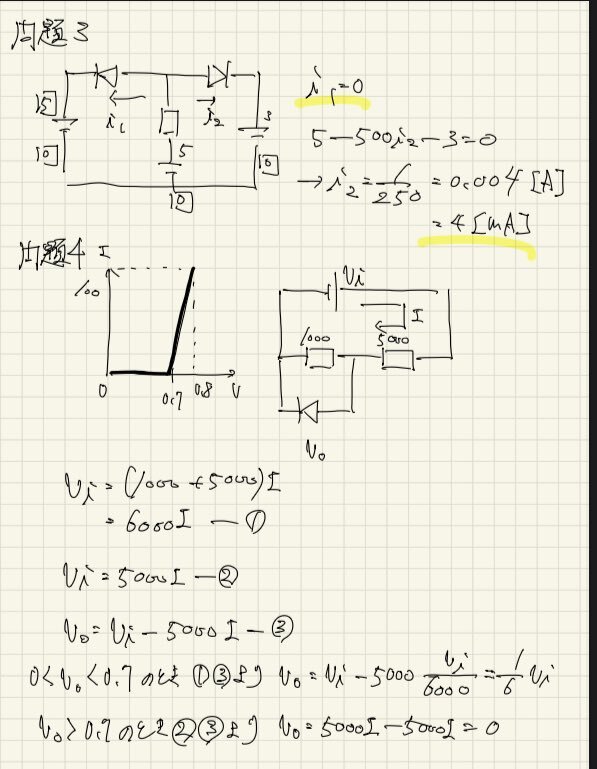 問題3
15
10
i₁
i₂
5
10
3
10
i₁=0
5-500i₂-3=0
→ i₂=1/250=0.004[A]
=4[mA]
問題4
I
100
0
0.7
0.8
V
Vi
I
1000
5000
V₀
Vi=(1000+5000)I
=6000I—①
Vi=5000I—②
V₀=Vi-5000I—③
0<V₀<0.7のとき①③より V₀=Vi-5000 Vi/6000=1/6 Vi
V₀>0.7のとき②③より V₀=5000I-5000I=0